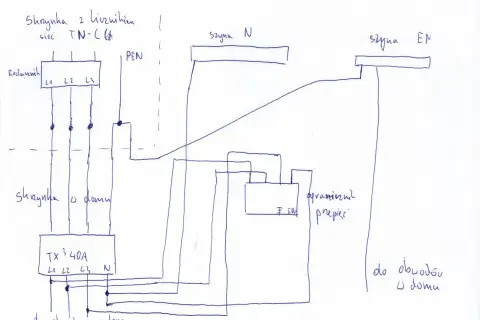 Skrzynka z licznikiem
sieć TN-C
szyna N
szyna
PEN
L1 L2 L3
Skrzynka w domu
ogranicznik
przepięć
TX³ 40A
L1 L2 L3 N
do obwodów
w domu